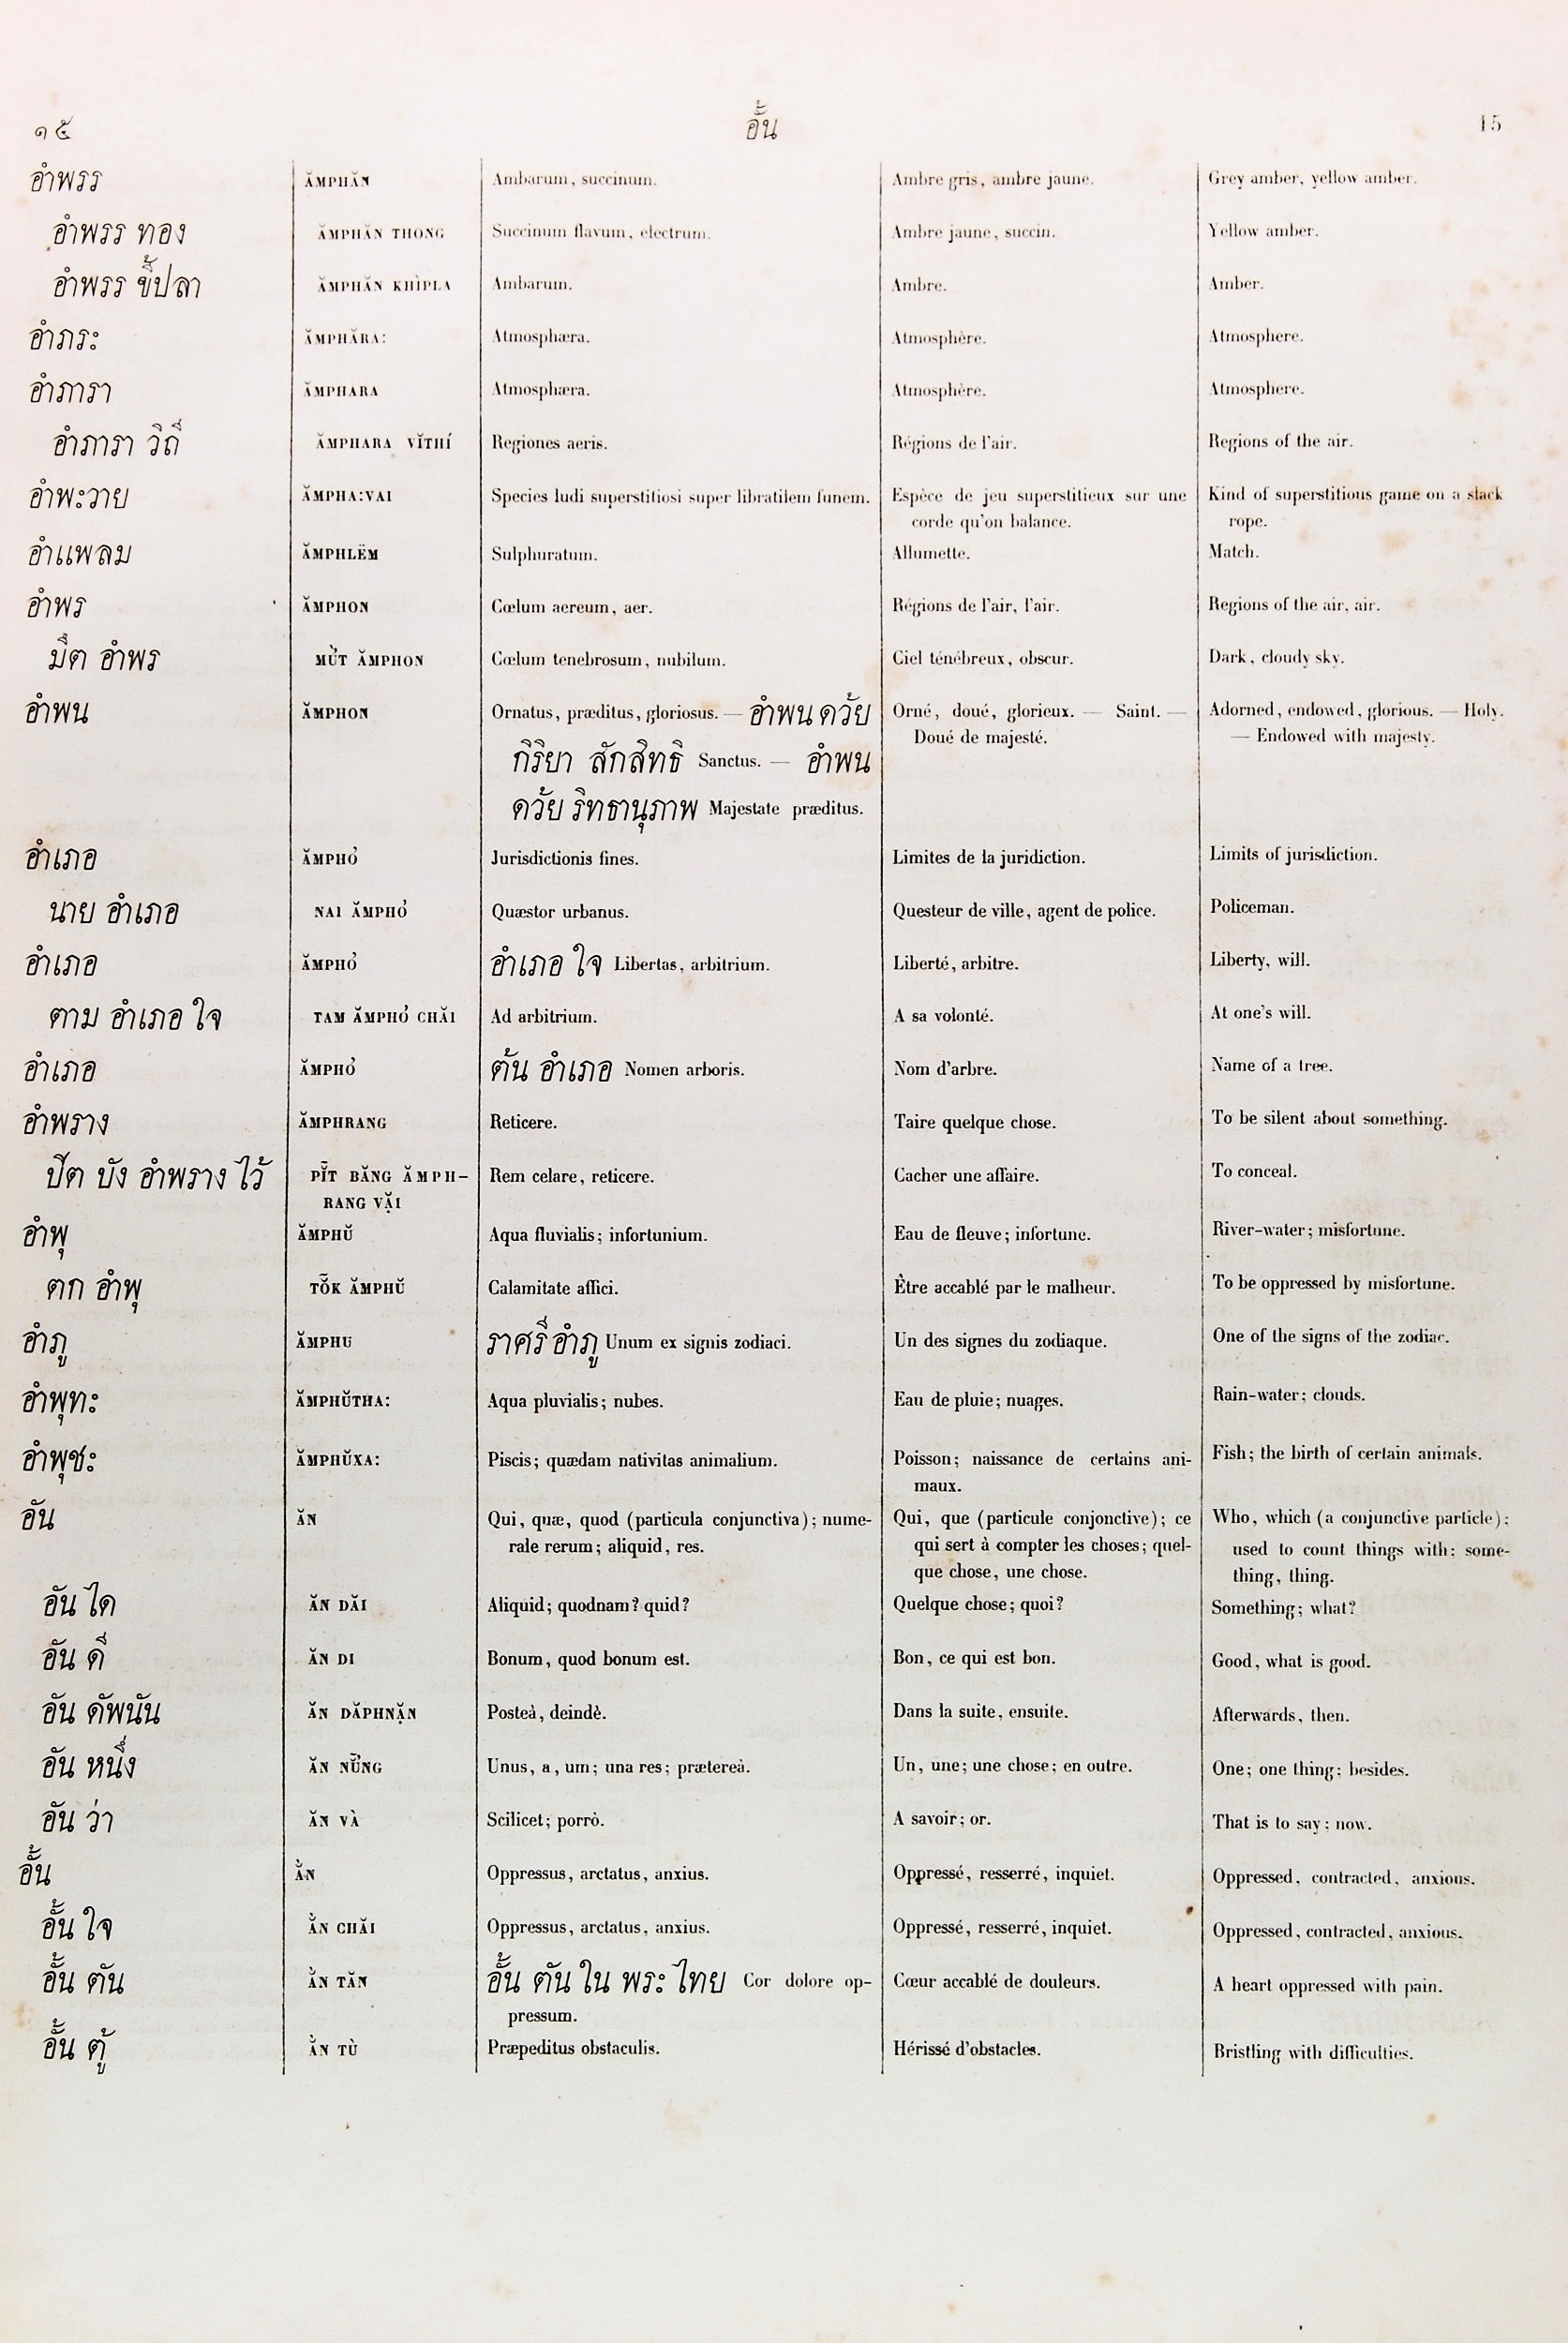 ๑๕ อั้น 15
อำพรร ĂMPHĂN Ambarum, succinum. Ambre gris, ambre jaune. Grey amber, yellow amber.
อำพรร ทอง ĂMPHĂN THONG Succinum flavum, electrum. Ambre jaune, succin. Yellow amber.
อำพรร ขี้ปลา ĂMPHĂN KHÌPLA Ambarum. Ambre. Amber.
อำภระ ĂMPHĂRA: Atmosphæra. Atmosphère. Atmosphere.
อำภารา ĂMPHARA Atmosphæra. Atmosphère. Atmosphere.
อำภารา วิถี ĂMPHARA VĬTHÍ Regiones aeris. Régions de l'air. Regions of the air.
อำพะวาย ĂMPHA:VAI Species ludi superstitiosi super libratilem funem. Espèce de jeu superstitieux sur une Kind of superstitious game on a slack
corde qu'on balance. rope.
อำแพลม ĂMPHLËM Sulphuratum. Allumette. Match.
อำพร ĂMPHON Cœlum aereum, aer. Régions de l'air, l'air. Regions of the air, air.
มืต อำพร MỦ̯T ĂMPHON Cœlum tenebrosum, nubilum. Ciel ténébreux, obscur. Dark, cloudy sky.
อำพน ĂMPHON Ornatus, præditus, gloriosus. — อำพน ดว้ย Orné, doué, glorieux. — Saint. — Adorned, endowed, glorious. — Holy.
กิริยา สักสิทธิ Sanctus. — อำพน Doué de majesté. — Endowed with majesty.
ดว้ย ริทธานุภาพ Majestate præditus.
อำเภอ ĂMPHO̓ Jurisdictionis fines. Limites de la juridiction. Limits of jurisdiction.
นาย อำเภอ NAI ĂMPHO̓ Quæstor urbanus. Questeur de ville, agent de police. Policeman.
อำเภอ ĂMPHO̓ อำเภอ ใจ Libertas, arbitrium. Liberté, arbitre. Liberty, will.
ตาม อำเภอ ใจ TAM ĂMPHO̓ CHĂI Ad arbitrium. A sa volonté. At one's will.
อำเภอ ĂMPHO̓ ต้น อำเภอ Nomen arboris. Nom d'arbre. Name of a tree.
อำพราง ĂMPHRANG Reticere. Taire quelque chose. To be silent about something.
ปีต บัง อำพราง ไว้ PĬ̄T BĂNG ĂMPH- Rem celare, reticere. Cacher une affaire. To conceal.
RANG VẶI
อำพุ ĂMPHŬ Aqua fluvialis; infortunium. Eau de fleuve; infortune. River-water; misfortune.
ตก อำพุ TŎ̄K ĂMPHŬ Calamitate affici. Être accablé par le malheur. To be oppressed by misfortune.
อำภู ĂMPHU ราศรี อำภู Unum ex signis zodiaci. Un des signes du zodiaque. One of the signs of the zodiac.
อำพุทะ ĂMPHŬTHA: Aqua pluvialis; nubes. Eau de pluie; nuages. Rain-water; clouds.
อำพุชะ ĂMPHŬXA: Piscis; quædam nativitas animalium. Poisson; naissance de certains ani- Fish; the birth of certain animals.
maux.
อัน ĂN Qui, quæ, quod (particula conjunctiva); nume- Qui, que (particule conjonctive); ce Who, which (a conjunctive particle);
rale rerum; aliquid, res. qui sert à compter les choses; quel- used to count things with: some-
que chose, une chose. thing, thing.
อัน ได ĂN DĂI Aliquid; quodnam? quid? Quelque chose; quoi? Something; what?
อัน ดี ĂN DI Bonum, quod bonum est. Bon, ce qui est bon. Good, what is good.
อัน ดัพนัน ĂN DĂPHNẶN Posteà, deindè. Dans la suite, ensuite. Afterwards, then.
อัน หนึ่ง ĂN NŬ̓̄NG Unus, a, um; una res; prætereà. Un, une; une chose; en outre. One; one thing; besides.
อัน ว่า ĂN VÀ Scilicet; porrò. A savoir; or. That is to say; now.
อั้น Ằ̆N Oppressus, arctatus, anxius. Oppressé, resserré, inquiet. Oppressed, contracted, anxious.
อั้น ใจ Ằ̆N CHĂI Oppressus, arctatus, anxius. Oppressé, resserré, inquiet. Oppressed, contracted, anxious.
อั้น ตัน Ằ̆N TĂN อั้น ตัน ใน พระ ไทย Cor dolore op- Cœur accablé de douleurs. A heart oppressed with pain.
pressum.
อั้น ตู้ Ằ̆N TÙ Præpeditus obstaculis. Hérissé d'obstacles. Bristling with difficulties.